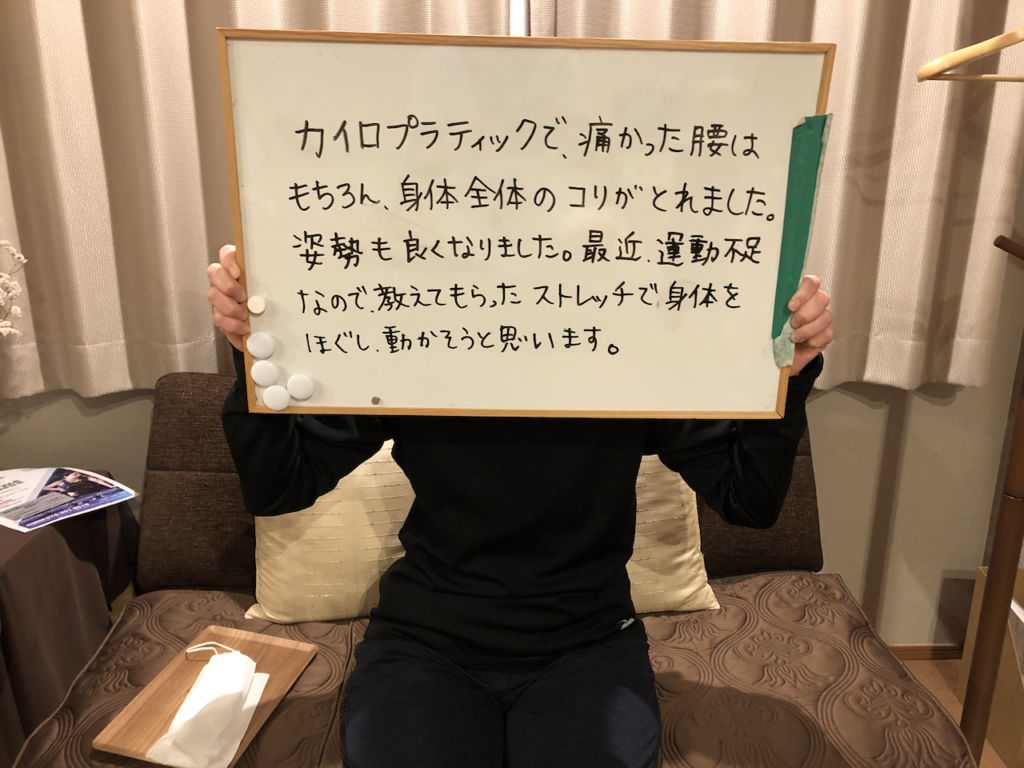 カイロプラティックで、痛かった腰は
もちろん、身体全体のコリがとれました。
姿勢も良くなりました。最近、運動不足
なので、教えてもらったストレッチで身体を
ほぐし、動かそうと思います。